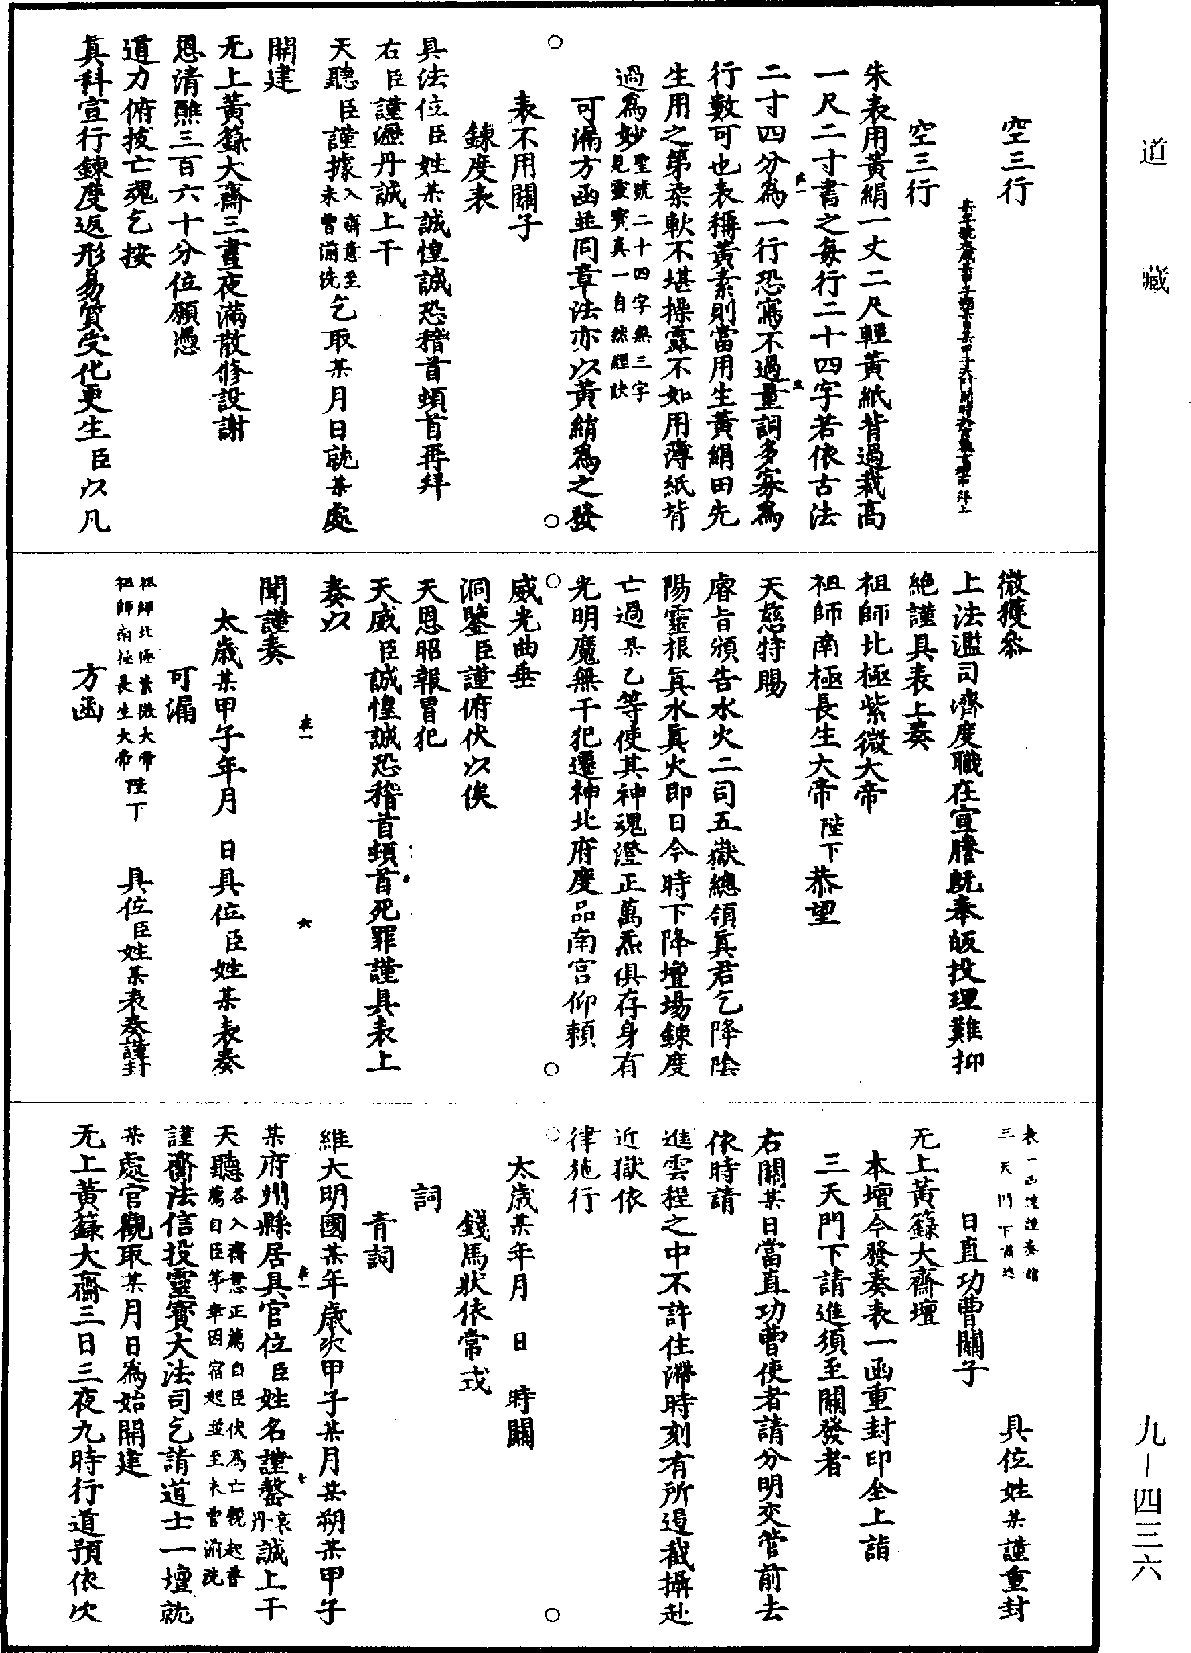 道藏
九—四三六
空三行
空三行
朱表用黃絹一丈二尺輕黃紙背過裁高
一尺二寸書之每行二十四字若依古法
二寸四分為一行恐寫不過量詞多寡為
行數可也表稱黃素則當用生黃絹田先
生用之第柔軟不堪操露不如用薄紙背
過為妙聖號二十四字無三字
見靈寶真一自然經訣
可漏方函並同章法亦以黃綃為之發
表不用關子
鍊度表
具法位臣姓某誠惶誠恐稽首頓首再拜
右臣謹瀝丹誠上干
天聽臣謹據入齋意至
未曾湔洗乞取某月日就某處
開建
无上黃籙大齋三晝夜滿散修設謝
恩清醮三百六十分位願憑
道力俯拔亡魂乞按
真科宣行鍊度返形易質受化更生臣以凡
微獲叅
上法濫司濟度職在宣牋既奉皈投理難抑
絕謹具表上奏
祖師北極紫微大帝
祖師南極長生大帝陛下恭望
天慈特賜
睿旨頒告水火二司五嶽總領真君乞降陰
陽靈根真水真火即日今時下降壇場鍊度
亡過某乙等使其神魂澄正萬炁俱存身有
光明魔無干犯遷神北府度品南宮仰賴
威光曲垂
洞鑒臣謹俯伏以俟
天恩昭報冒犯
天威臣誠惶誠恐稽首頓首死罪謹具表上
奏以
聞謹奏
太歲某甲子年月　日具位臣姓某表奏
可漏
祖師北極紫微大帝
祖師南極長生大帝陛下　具位臣姓某表奏謹封
方函
表一函謹謹奏詣
三天門下　具位姓某謹重封
日直功曹關子
无上黃籙大齋壇
本壇今發奏表一函重封印全上詣
三天門下請進須至關發者
右關某日當直功曹使者請分明交管前去
依時請
進雲程之中不許住滯時刻有所過截攝赴
近獄依
律施行
太歲某年月　日　時關
錢馬狀依常式
詞
青詞
維大明國某年歲次甲子某月某朔某甲子
某府州縣居具官位臣姓名謹罄哀
丹誠上干
天聽
謹齎法信投靈寶大法司乞請道士一壇就
某處官觀取某月日為始開建
无上黃籙大齋三日三夜九時行道預依次